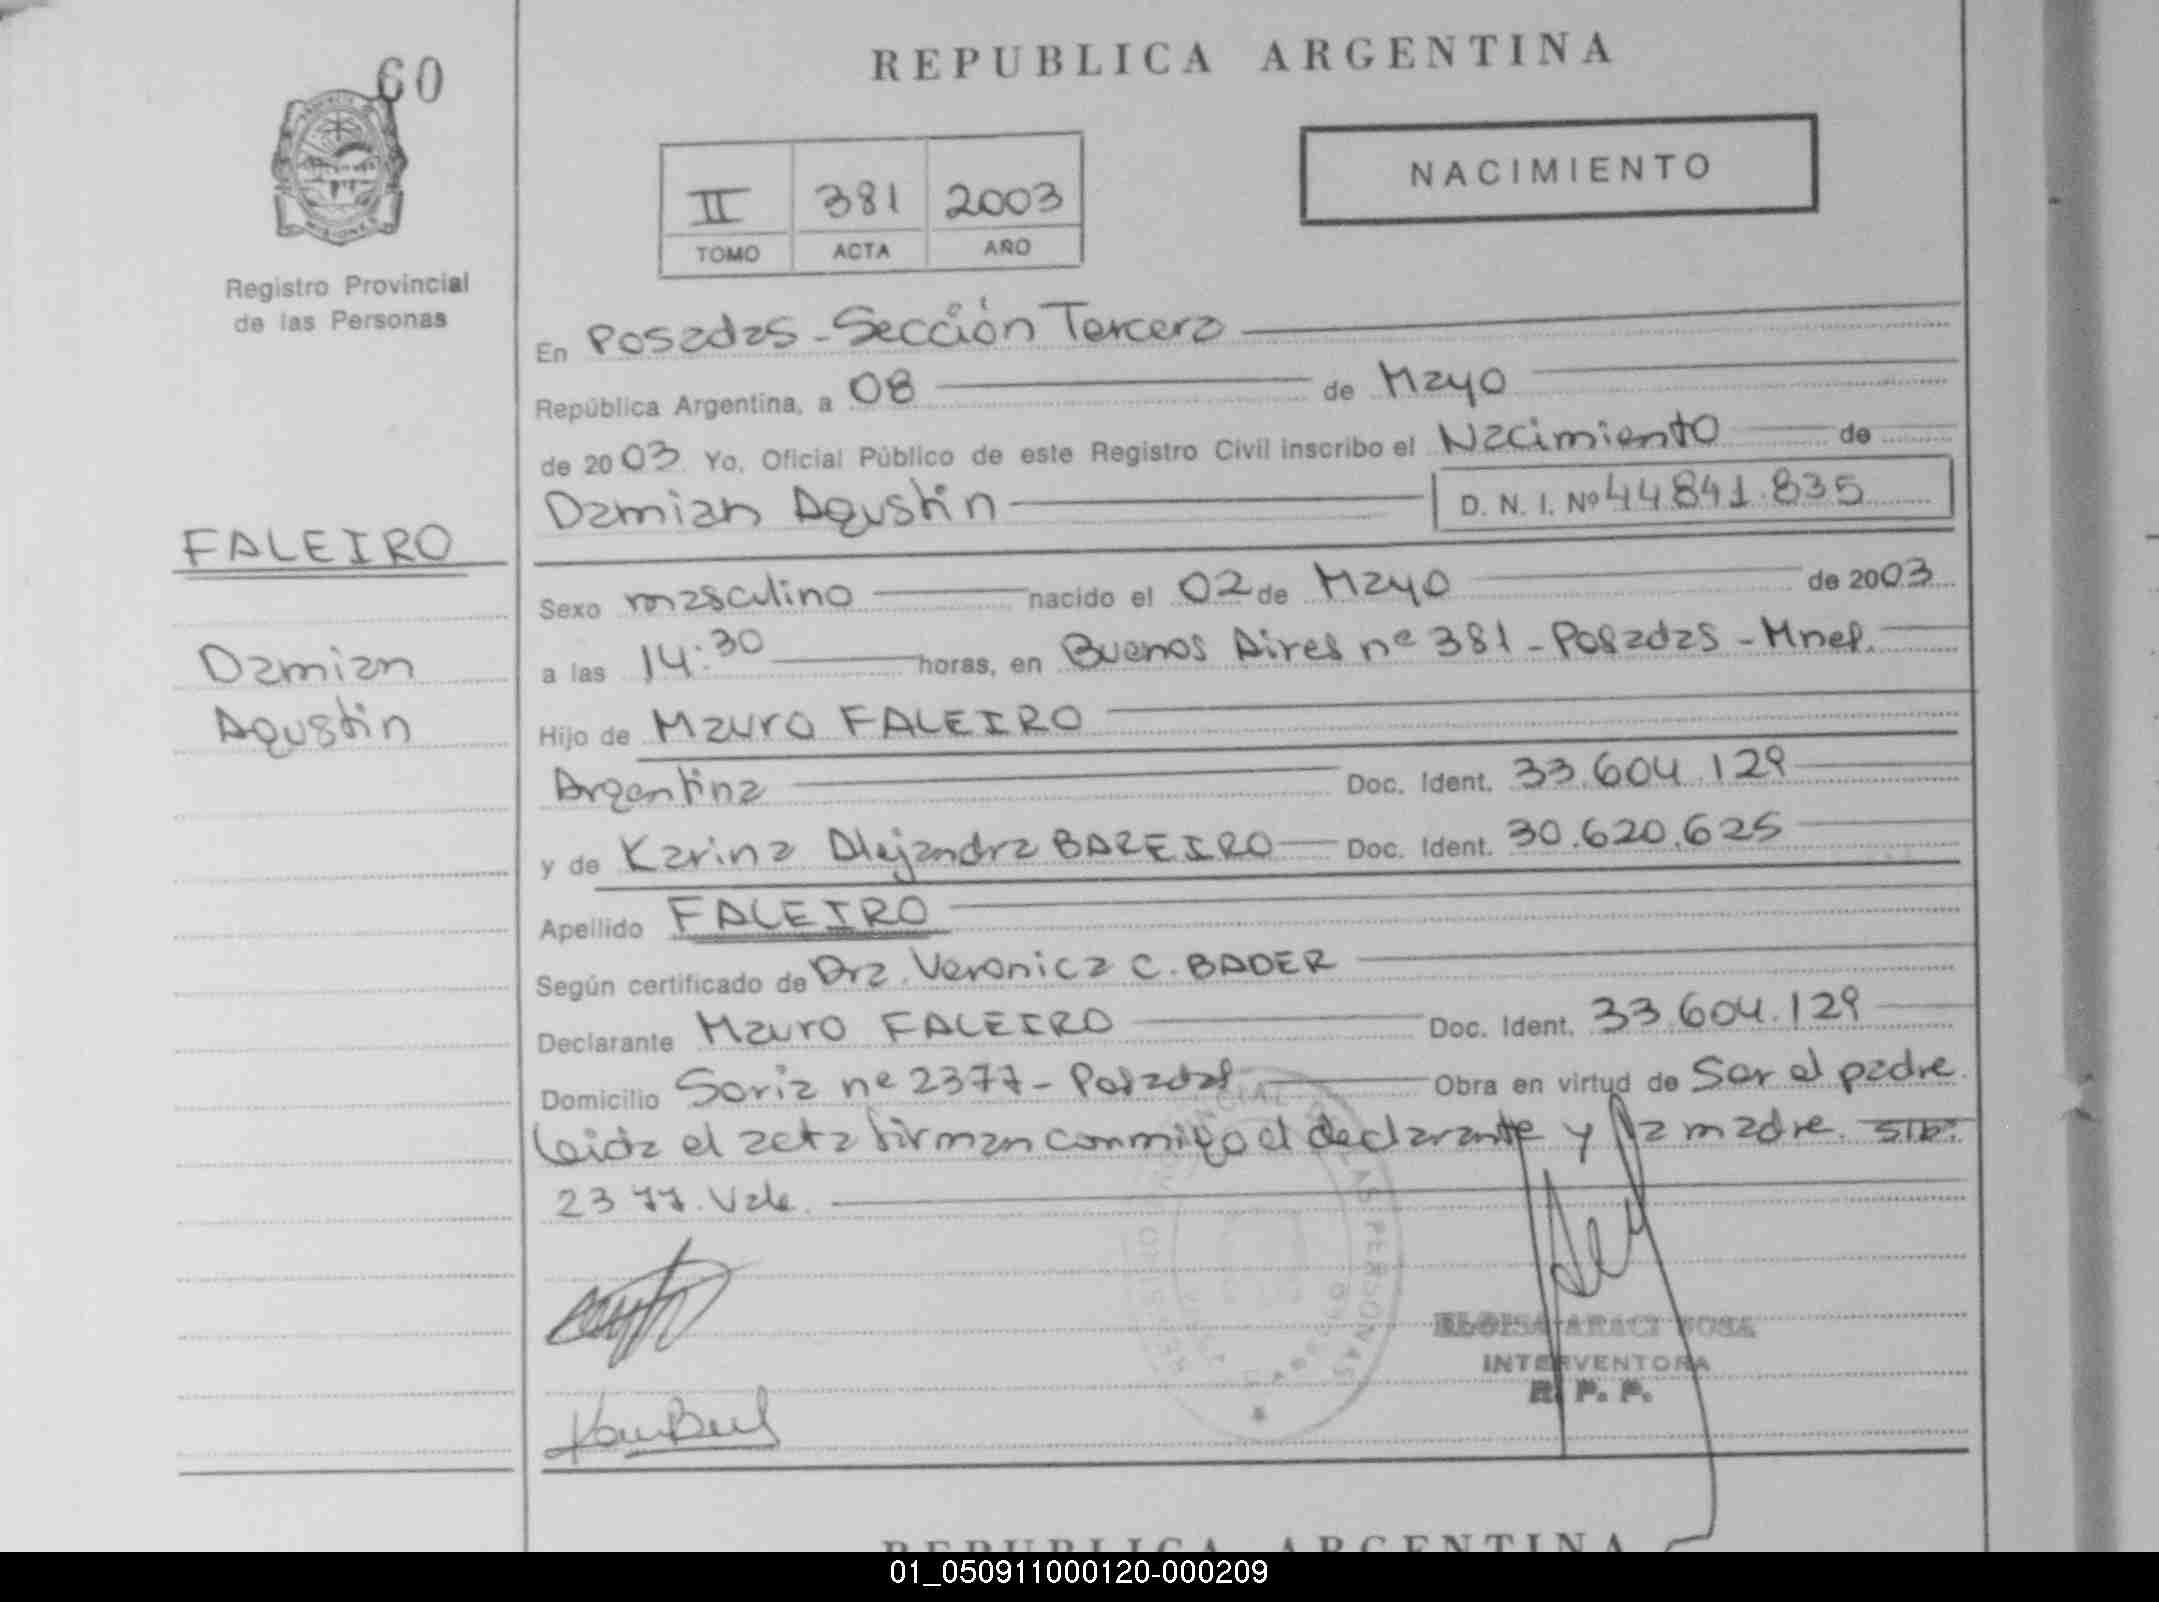 60
REPUBLICA ARGENTINA
NACIMIENTO
II 381 2003
TOMO ACTA AÑO
Registro Provincial
de las Personas
En Posadas - Sección Tercera
República Argentina, a 08 de Mayo
de 2003. Yo, Oficial Público de este Registro Civil inscribo el Nacimiento de
Damian Agustin D. N. I. Nº 44.841.835
FALEIRO
Damian
Agustin
Sexo masculino nacido el 02 de Mayo de 2003
a las 14:30 horas, en Buenos Aires nº 381 - Posadas - Mnes.
Hijo de Mauro FALEIRO
Argentina Doc. Ident. 33.604.129
y de Karina Alejandra BAREIRO Doc. Ident. 30.620.625
Apellido FALEIRO
Según certificado de Dra. Veronica C. BADER
Declarante Mauro FALEIRO Doc. Ident. 33.604.129
Domicilio Soria nº 2377 - Posadas Obra en virtud de Ser el padre.
Leida el acta firman conmigo el declarante y la madre. S/R:
2377. Vale.
ELOISA ARACI SOSA
INTERVENTORA
R. P. P.
REPUBLICA ARGENTINA
01_050911000120-000209